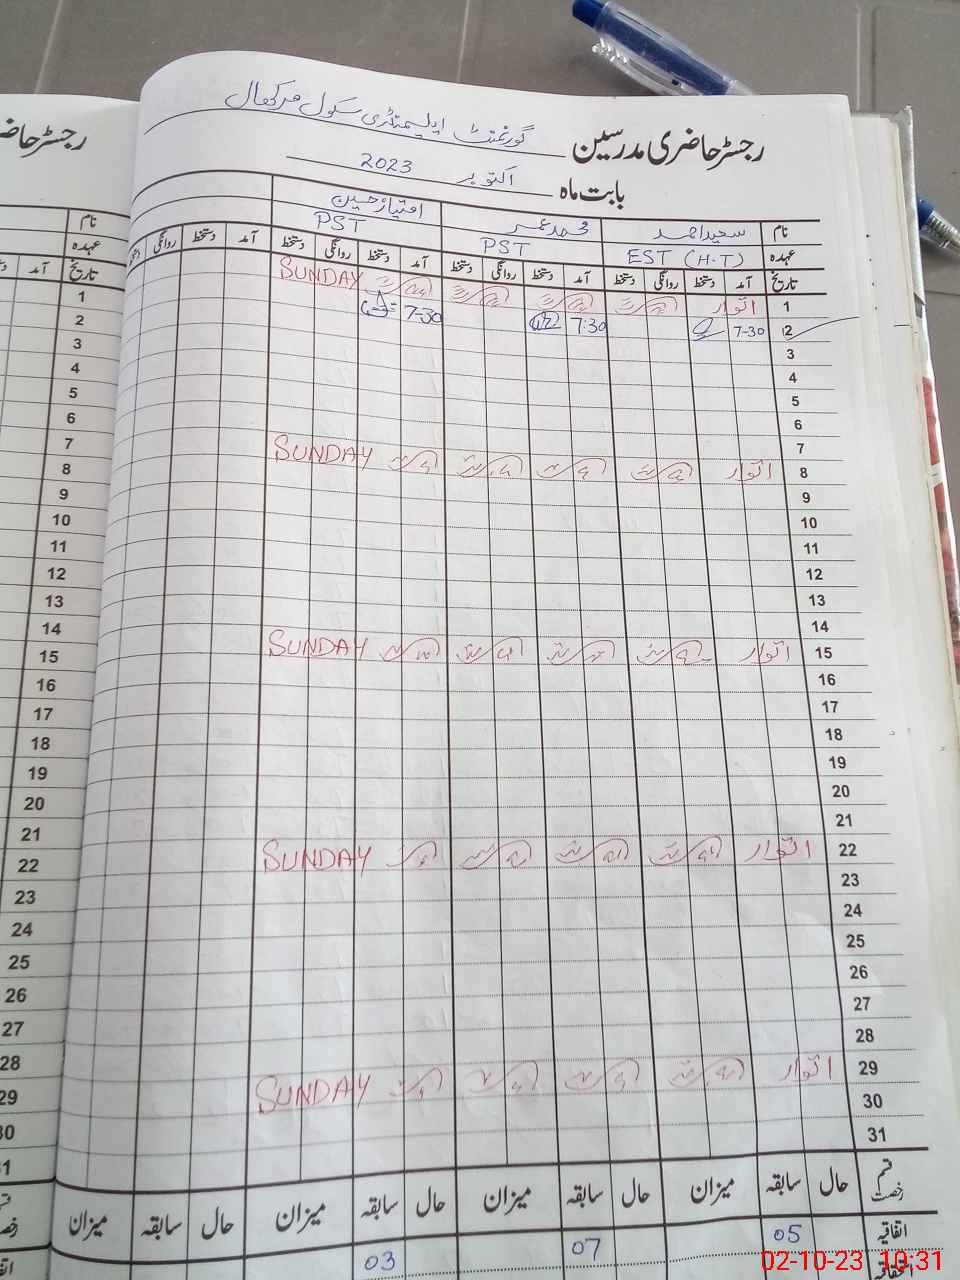 گورنمنٹ ایلیمنٹری سکول مرکھال
رجسٹر حاضری مدرسین
بابت ماہ اکتوبر 2023
نام سعید احمد محمد عمر امتیاز حسین
عہدہ EST (H-T) PST PST
تاریخ آمد دستخط روانگی دستخط آمد دستخط روانگی دستخط آمد دستخط روانگی دستخط آمد دستخط روانگی دستخط
1 اتوار SUNDAY
2 7-30 7:30 7-30
3
4
5
6
7
8 اتوار SUNDAY
9
10
11
12
13
14
15 اتوار SUNDAY
16
17
18
19
20
21
22 اتوار SUNDAY
23
24
25
26
27
28
29 اتوار SUNDAY
30
31
قسم رخصت حال سابقہ میزان حال سابقہ میزان حال سابقہ میزان حال سابقہ میزان
اتفاقیہ 05 07 03
نام
عہدہ
تاریخ آمد
1
2
3
4
5
6
7
8
9
10
11
12
13
14
15
16
17
18
19
20
21
22
23
24
25
26
27
28
29
30
31
02-10-23 10:31